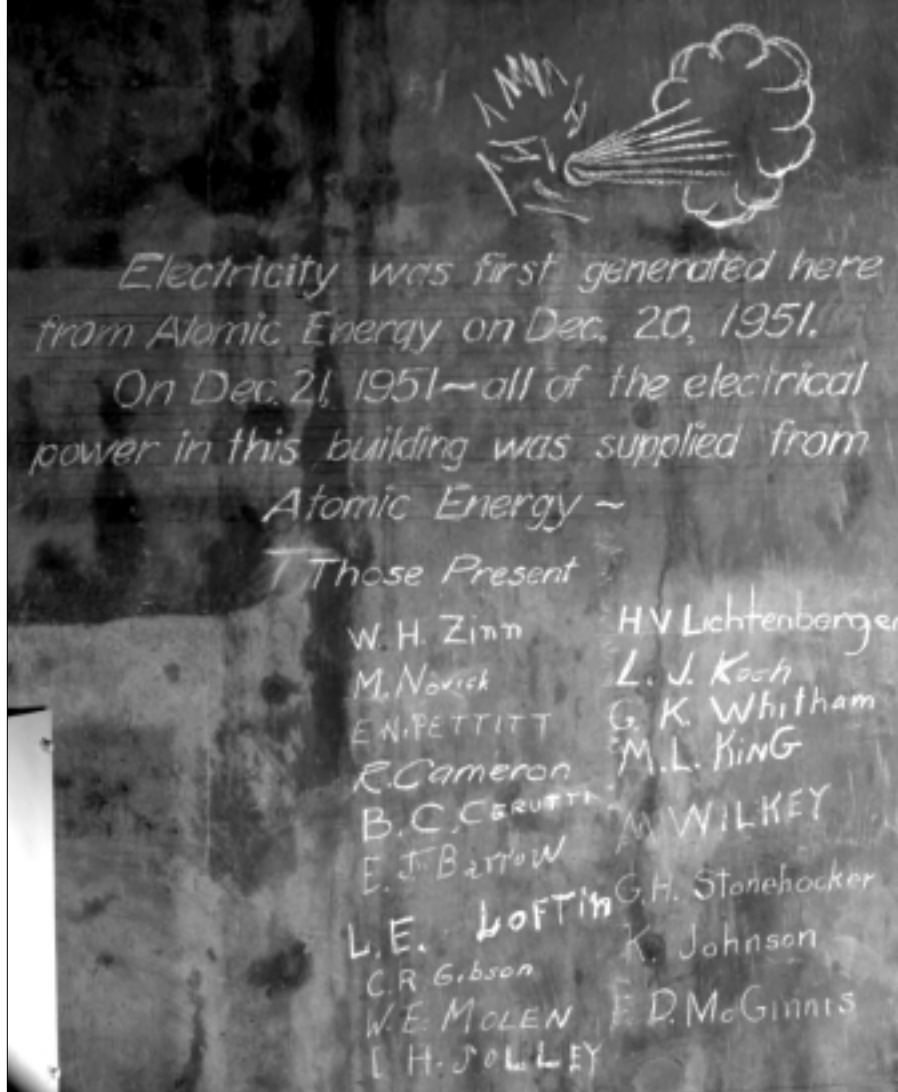 Electricity was first generated here
from Atomic Energy on Dec. 20, 1951.
On Dec. 21, 1951~all of the electrical
power in this building was supplied from
Atomic Energy ~
Those Present
W. H. Zinn
M. Novick
E. N. PETTITT
R. Cameron
B. C. CERUTTI
E. J. Barrow
L. E. LOFTIN
C. R. Gibson
W. E. MOLEN
H. JOLLEY
H V Lichtenberger
L. J. Koch
G. K. Whitham
M. L. KING
M WILKEY
G. H. Stonehocker
K. Johnson
D. McGinnis